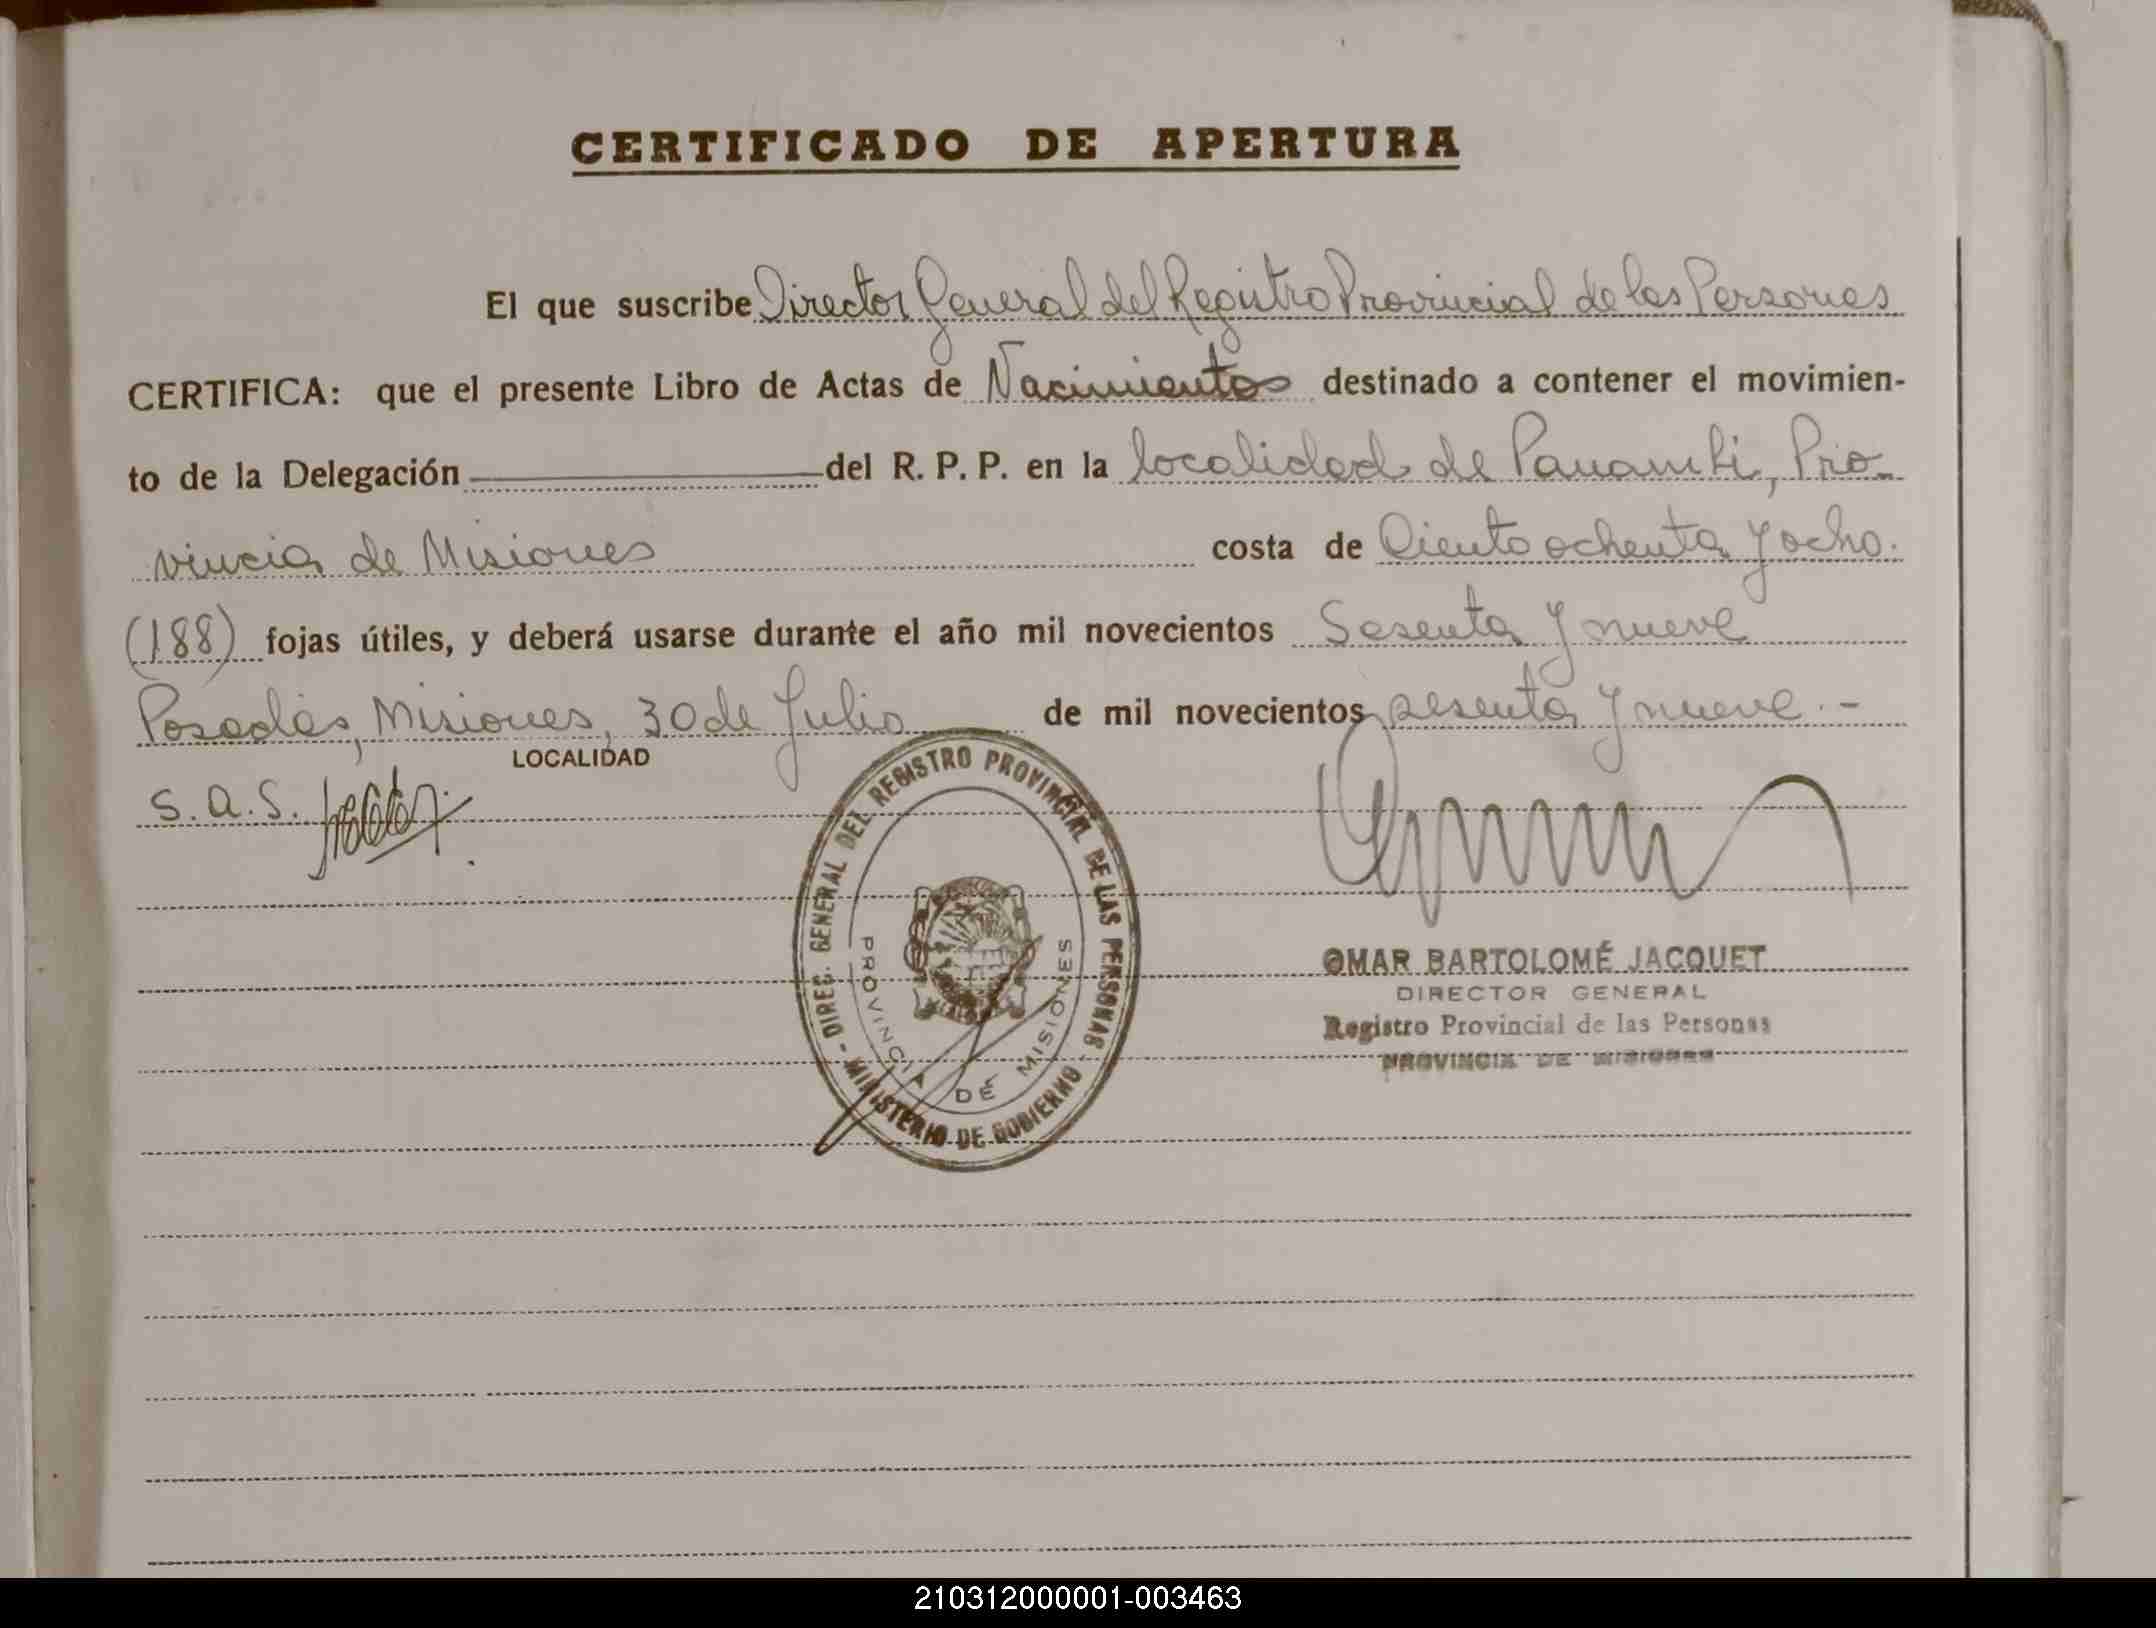 CERTIFICADO DE APERTURA
El que suscribe Director General del Registro Provincial de las Personas
CERTIFICA: que el presente Libro de Actas de Nacimientos destinado a contener el movimien-
to de la Delegación del R. P. P. en la localidad de Panambi, Pro-
vincia de Misiones costa de Ciento ochenta y ocho.
(188) fojas útiles, y deberá usarse durante el año mil novecientos Sesenta y nueve
Posadas, Misiones, 30 de Julio de mil novecientos sesenta y nueve.-
LOCALIDAD
S.A.S.
- DIREC. GENERAL DEL REGISTRO PROVINCIAL DE LAS PERSONAS -
MINISTERIO DE GOBIERNO
PROVINCIA DE MISIONES
OMAR BARTOLOMÉ JACQUET
DIRECTOR GENERAL
Registro Provincial de las Personas
PROVINCIA DE MISIONES
210312000001-003463